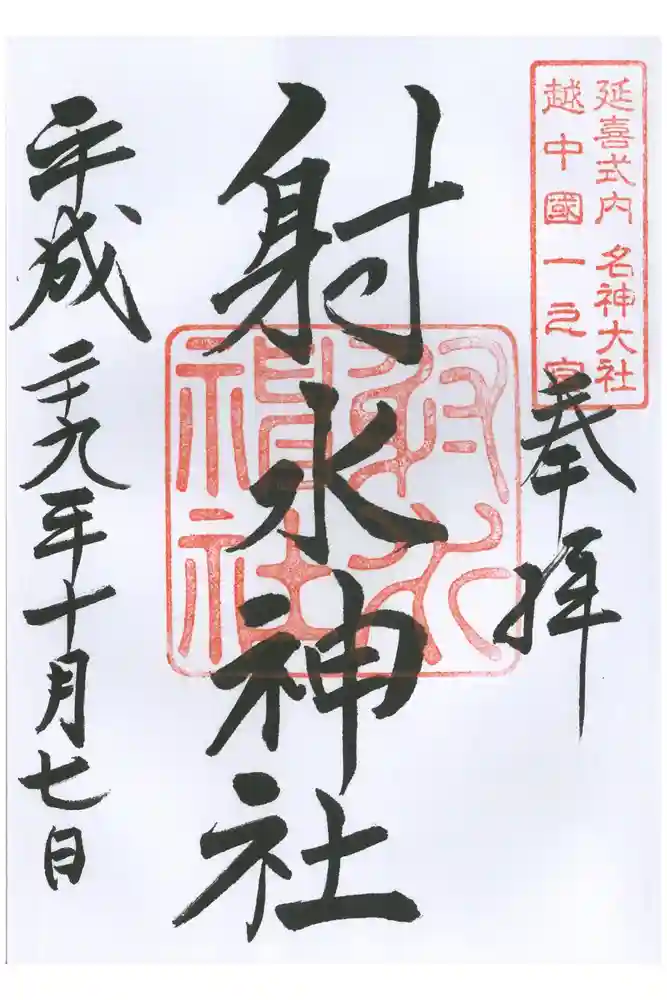 延喜式内 名神大社
越中國一之宮
奉拝
射水神社
射水神社
平成二十九年十月七日